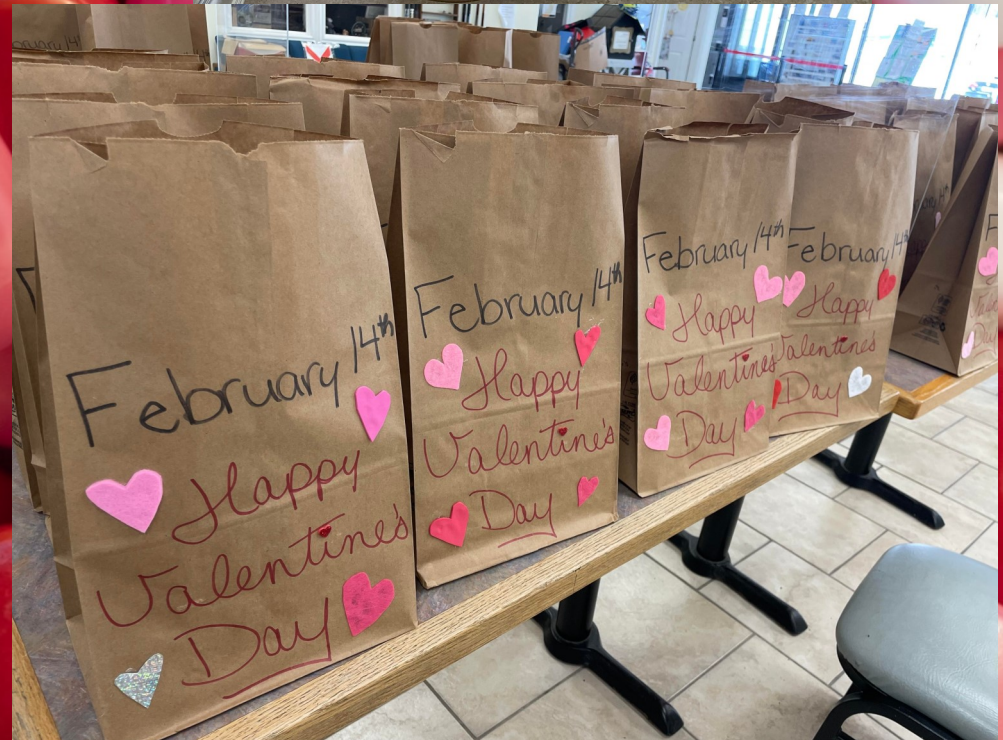 February 14th
Happy
Valentine's
Day
February 14th
Happy
Valentine's
Day
February 14th
Happy
Valentine's
Day
February 14th
Happy
Valentine's
Day